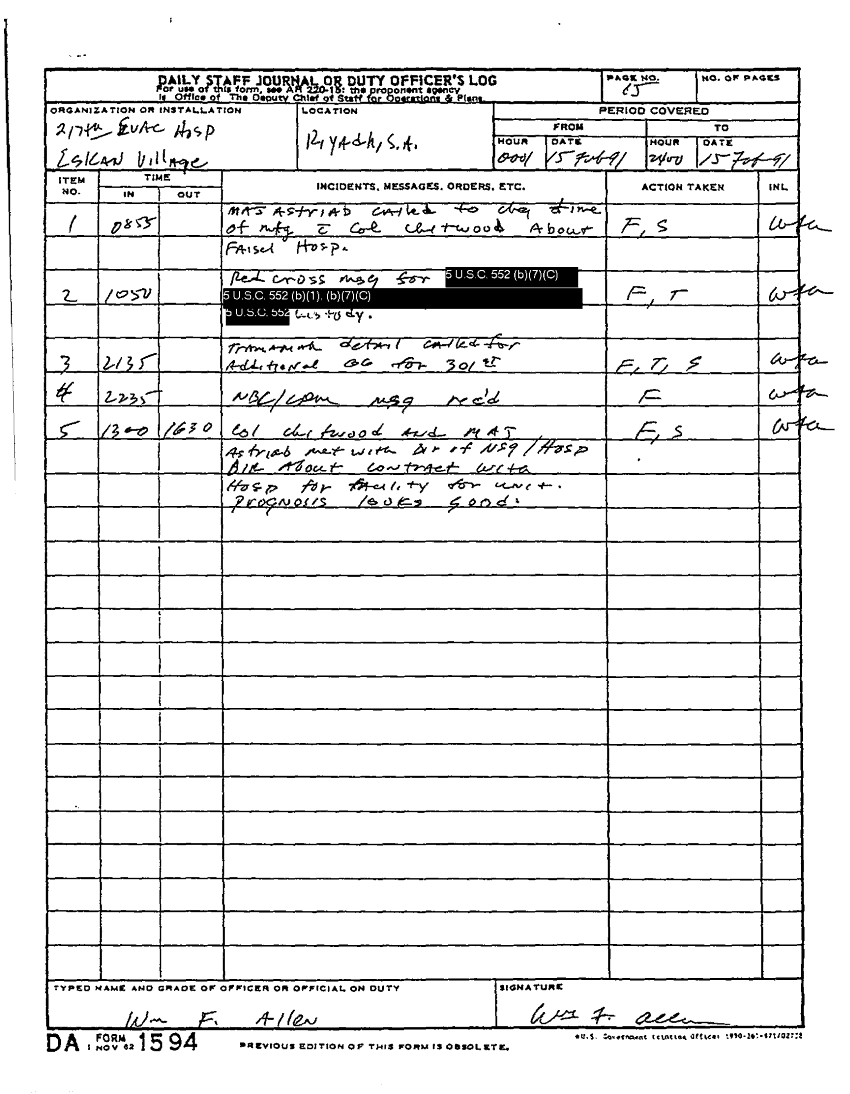 DAILY STAFF JOURNAL OR DUTY OFFICER'S LOG
For use of this form, see AR 220-15; the proponent agency
is Office of The Deputy Chief of Staff for Operations & Plans.
PAGE NO.
15
NO. OF PAGES
ORGANIZATION OR INSTALLATION
217th EVAC HOSP
ESKAN Village
LOCATION
RIYADH, S.A.
PERIOD COVERED
FROM
TO
HOUR
DATE
HOUR
DATE
0001
15 Feb 91
2400
15 Feb 91
ITEM NO.
TIME
IN
OUT
INCIDENTS, MESSAGES, ORDERS, ETC.
ACTION TAKEN
INL
1 0855 MAJ ASTRIAB called to chg time
of mtg c̄ Col Chetwood About F, S wfa
FAisel Hosp.
Red cross msg for 5 U.S.C. 552 (b)(7)(C)
2 1050 5 U.S.C. 552 (b)(1), (b)(7)(C) F, T wfa
5 U.S.C. 552 custody.
detail called for
3 2135 Additional GG for 301st F, T, S wfa
4 2235 NBC/ msg rec'd F wfa
5 1300 1630 Col Chetwood AND MAJ F, S wfa
Astriab met with Dir of NSG/HOSP
DIR About contract with
Hosp for facility for unit.
PROGNOSIS looks good.
TYPED NAME AND GRADE OF OFFICER OR OFFICIAL ON DUTY
Wm F. Allen
SIGNATURE
Wm F. Allen
DA FORM 1 NOV 62 1594
PREVIOUS EDITION OF THIS FORM IS OBSOLETE.
U.S. Government Printing Office: 1990-261-871/02752